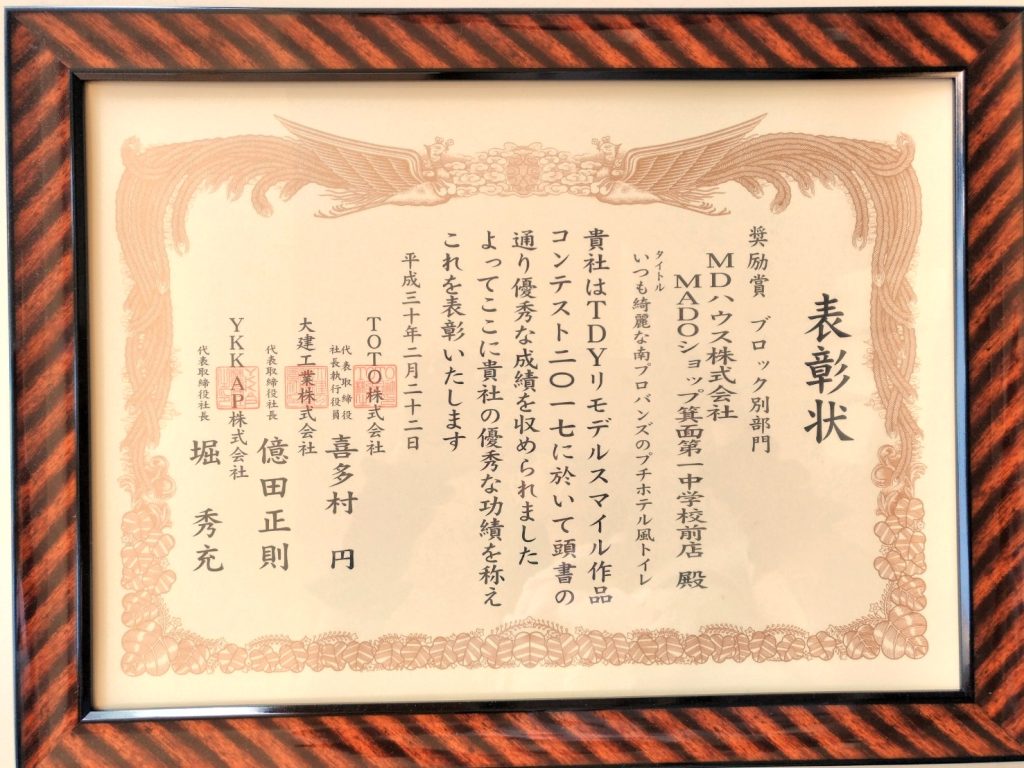 表彰状
奨励賞 ブロック別部門
MDハウス株式会社
MADOショップ箕面第一中学校前店 殿
タイトル
いつも綺麗な南プロバンズのプチホテル風トイレ
貴社はTDYリモデルスマイル作品
コンテスト二〇一七に於いて頭書の
通り優秀な成績を収められました
よってここに貴社の優秀な功績を称え
これを表彰いたします
平成三十年二月二十二日
TOTO株式会社
代表取締役
社長執行役員
喜多村 円
大建工業株式会社
代表取締役社長 億田正則
YKK AP株式会社
代表取締役社長 堀 秀充